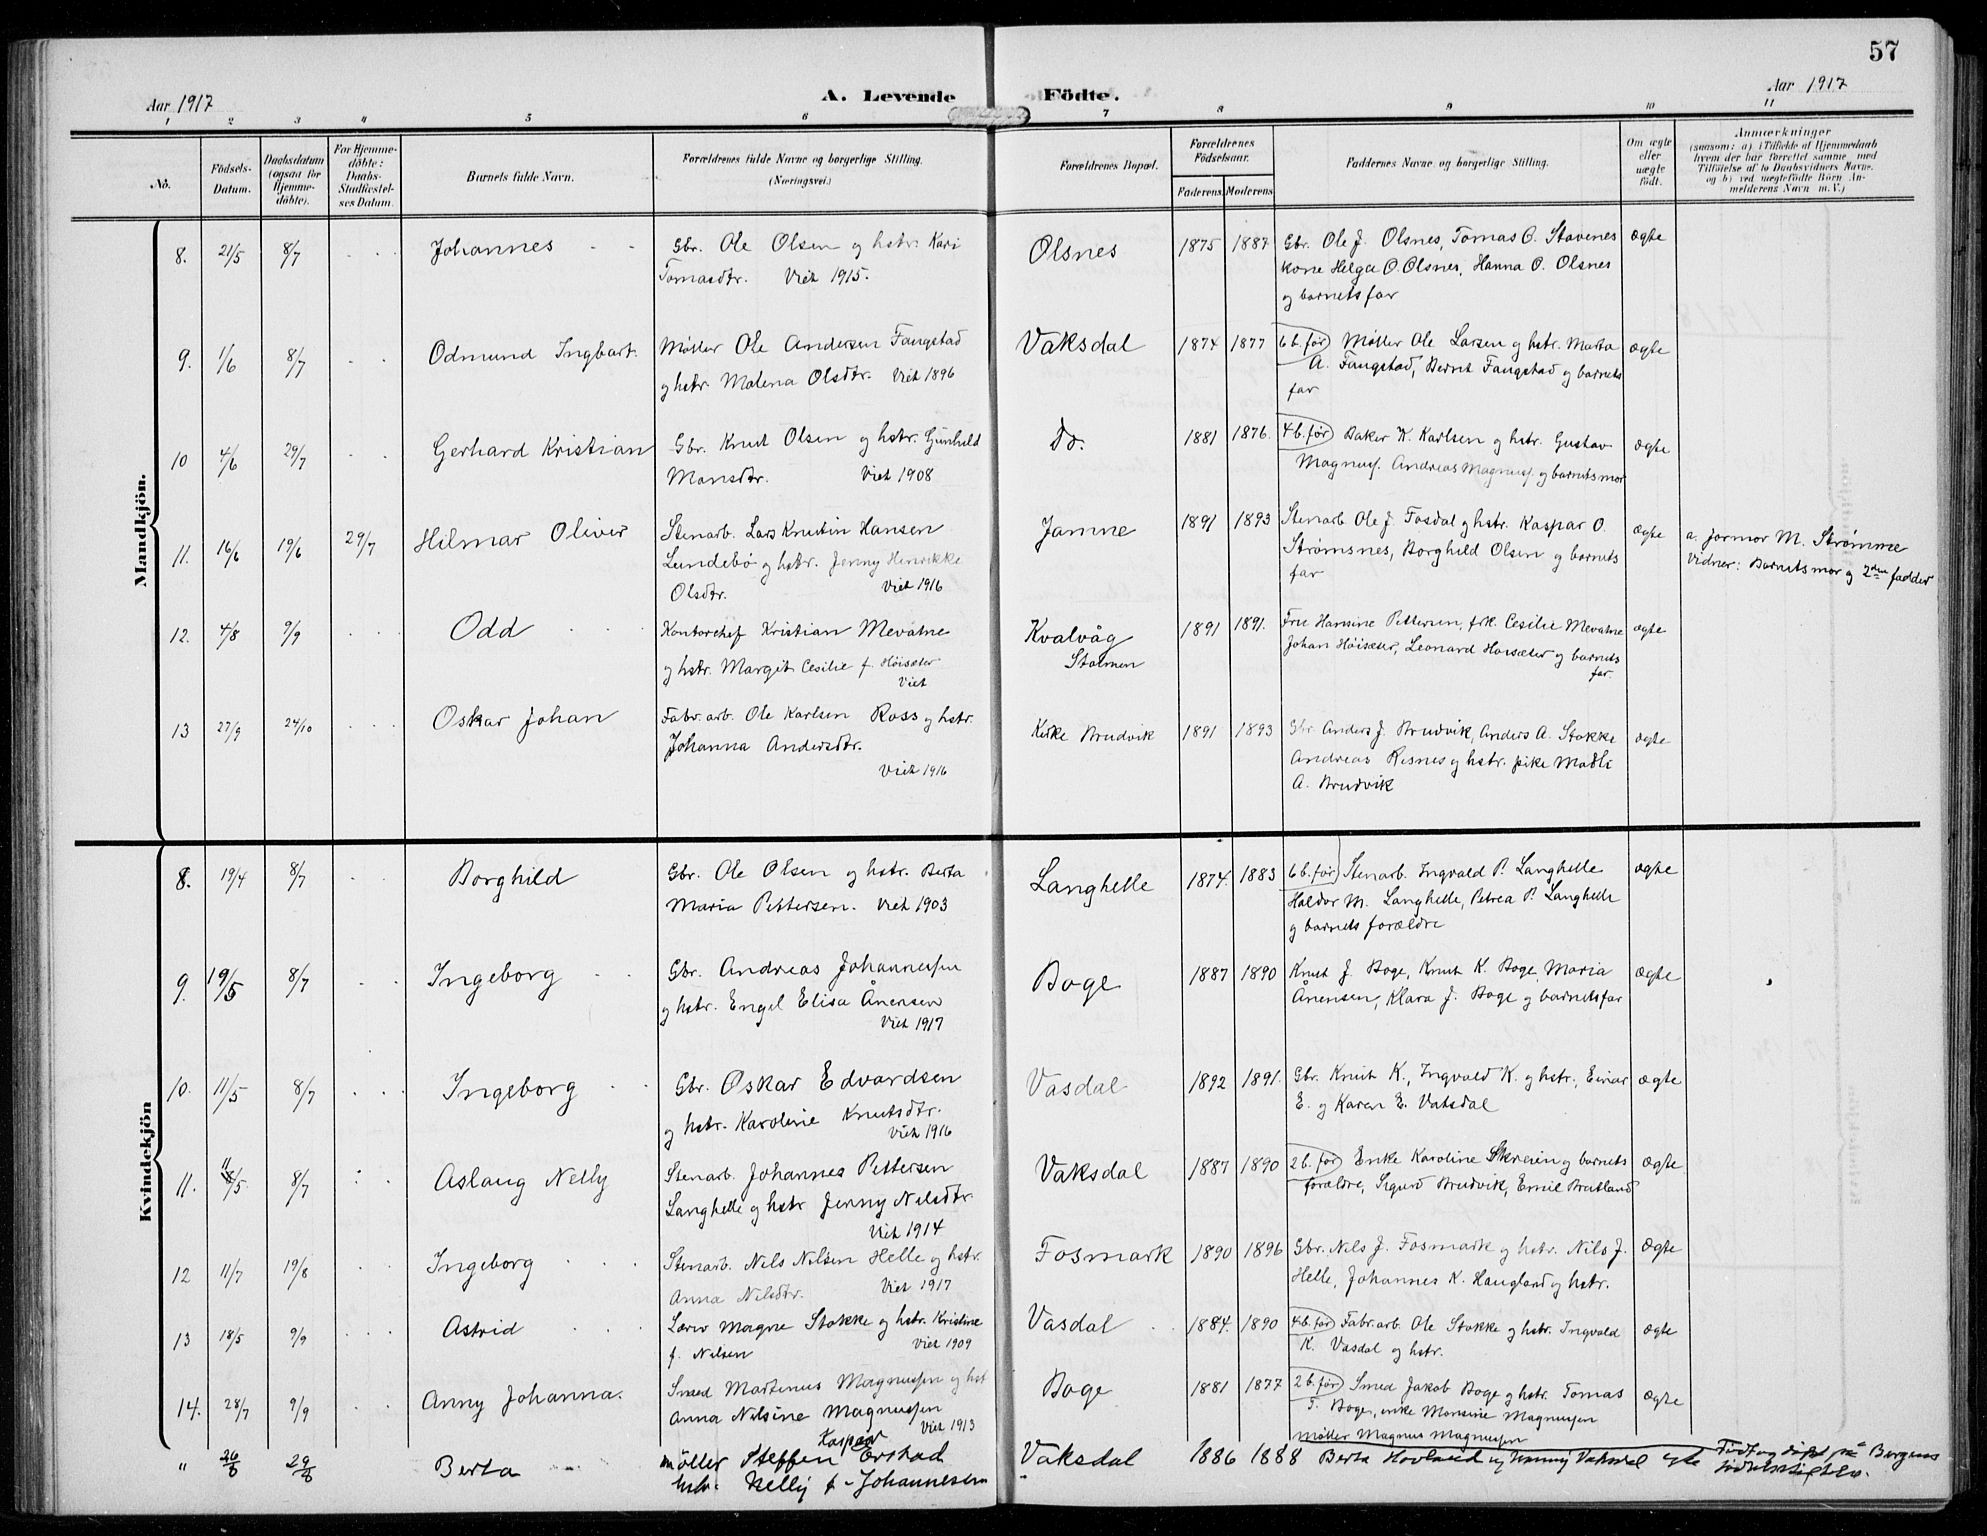 57
Aar 1917 A. Levende Födte. Aar 1917
1 2 3 4 5 6 7 8 9 10 11
No. Födsels-Datum. Daabsdatum (ogsaa for Hjemme-döbte). For Hjemme-döbte: Daabs-Stadfæstel-ses Datum. Barnets fulde Navn. Forældrenes fulde Navne og borgerlige Stilling. (Næringsvei.) Forældrenes Bopæl. Forældrenes Födselsaar. Faderens. Moderens. Faddernes Navne og borgerlige Stilling. Om ægte eller uægte födt. Anmærkninger (saasom: a) i Tilfælde af Hjemmedaab hvem der har forrettet samme, med Tilföielse af to Daabsvidners Navne, og b) ved uægtefödte Börn An-melderens Navn m. V.)
Mandkjön.
8. 21/5 8/7 Johannes Gbr. Ole Olsen og hstr. Kari Olsnes 1875 1887 Gbr. Ole J. Olsnes, Tomas O. Stavenes ægte
Tomasdtr. Viet 1915. kone Helga O. Olsnes, Hanna O. Olsnes
og barnets far
9. 1/6 8/7 Odmund Ingbart. Møller Ole Andersen Fangstad Vaksdal 1874 1877 6 b. før Møller Ole Larsen og hstr. Marta ægte
og hstr. Malena Olsdtr. Viet 1896 A. Fangstad, Bernt Fangstad og barnets
far
10 4/6 29/7 Gerhard Kristian Gbr. Knut Olsen og hstr. Gunhild Do. 1881 1876. 4 b. før Baker K. Karlsen og hstr. Gustav ægte
Monsdtr. Viet 1908 Magnus. Andreas Magnuss. og barnets mor
11. 16/6 19/6 29/7 Hilmar Oliver Stenarb. Lars Knutin Hansen Jamne 1891 1893 Stenarb. Ole J. Fosdal og hstr. Kaspar O. ægte a. jormor M. Strømme
Lundebø og hstr. Jenny Henrikke Strømsnes, Borghild Olsen og barnets Vidner: Barnets mor og 2den fadder
Olsdtr. Viet 1916 far
12. 4/8 9/9 Odd Kontorchef Kristian Mevatne Kvalvåg 1891 1891. Fru Hansine Pettersen, frk. Cesilie Mevatne ægte
og hstr. Margit Cesilie f. Høisæter Stolmen Johan Høisæter, Leonard Høisæter og barnets
Viet far.
13 27/9 24/10 Oskar Johan Fabr. arb. Ole Karlsen Ross og hstr. Kirke Bruvik 1891 1893 Gbr. Anders J. Bruvik, Anders A. Stokke ægte
Johanna Andersdtr. Andreas Risnes og hstr. pike Madli
Viet 1916 A. Bruvik
Kvindekjön
8. 19/4 8/7 Borghild Gbr. Ole Olsen og hstr. Berta Langhelle 1874. 1883 6 b. før Stenarb. Ingvald P. Langhelle ægte
Maria Pettersen. Viet 1903 Haldor M. Langhelle, Petrea P. Langhelle
og barnets forældre
9. 19/5 8/7 Ingeborg Gbr. Andreas Johannessen Boge 1887 1890 Knut J. Boge, Knut K. Boge, Maria ægte
og hstr. Engel Elisa Ånensen Ånensen, Klara J. Boge og barnets far
Viet 1917
10. 11/5 8/7 Ingeborg Gbr. Oskar Edvardsen Vasdal 1892 1891. Gbr. Knut K., Ingvald K. og hstr., Einar ægte
og hstr. Karoline Knutsdtr. E. og Karen E. Vatsdal
Viet 1916
11. 11/5 8/7 Aslaug Nelly Stenarb. Johannes Pettersen Vaksdal 1887 1890 2 b. før Enke Karoline Skreien og barnets ægte
Langhelle og hstr Jenny Nilsdtr forældre, Sigurd Bruvik, Emil Bratland
Viet 1914
12 11/7 19/8 Ingeborg Stenarb. Nils Nilsen Helle og hstr. Fosmark 1890 1896 Gbr. Nils J. Fosmark og hstr. Nils J. ægte
Anna Nilsdtr. Viet 1917 Helle, Johannes K. Haugland og hstr.
13 18/5 9/9 Astrid Lærer Magne Stokke og hstr. Kristine Vasdal 1884. 1890 4 b. før Fabr. arb. Ole Stokke og hstr. Ingvald ægte
f. Nilsen Viet 1909 K. Vasdal og hstr.
14. 28/7 9/9 Anny Johanna. Smed Martinus Magnussen og hst Boge 1881 1877 2 b. før Smed Jakob Boge og hstr. Tomas ægte
Anna Nilsine Magnussen T. Boge, enke Monsine Magnussen
Viet 1913 møller Magnus Magnussen
" Berta møller Steffen Kasper Erstad Vaksdal 1886 1888 Berta Hovland og Vaksdal egte Født og døpt på Bergens
hstr. Nelly f. Johannesen fødselsstiftelse.